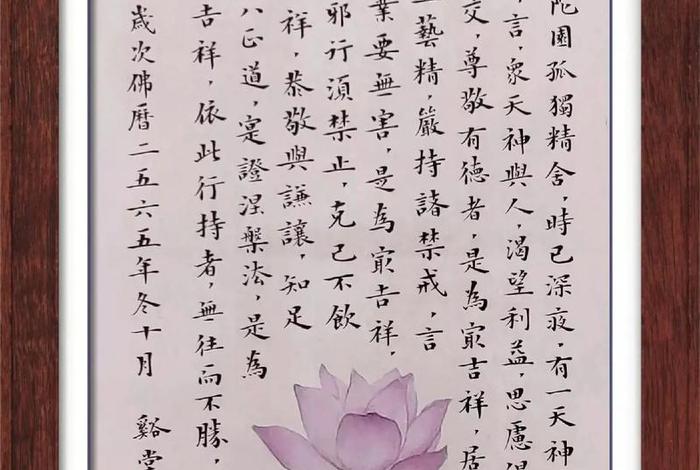 陀園孤獨精舍，時已深夜，有一天神
言，眾天神與人，渴望利益，思慮
交，尊敬有德者，是為冣吉祥，居
藝精，嚴持諸禁戒，言
業要無害，是為冣吉祥，
邪行須禁止，克己不飲
祥，恭敬與謙讓，知足
八正道，寔證涅槃法，是為
吉祥，依此行持者，無往而不勝，
歲次佛曆二五六五年冬十月 谿堂